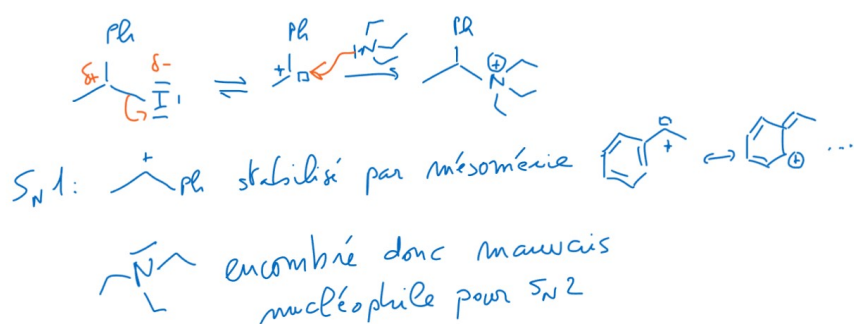 Ph Ph Ph
δ+ δ- I + N N ⊕
S_N1: + Ph stabilisé par mésomérie + ↔ ⊕ ...
N encombré donc mauvais
nucléophile pour S_N2